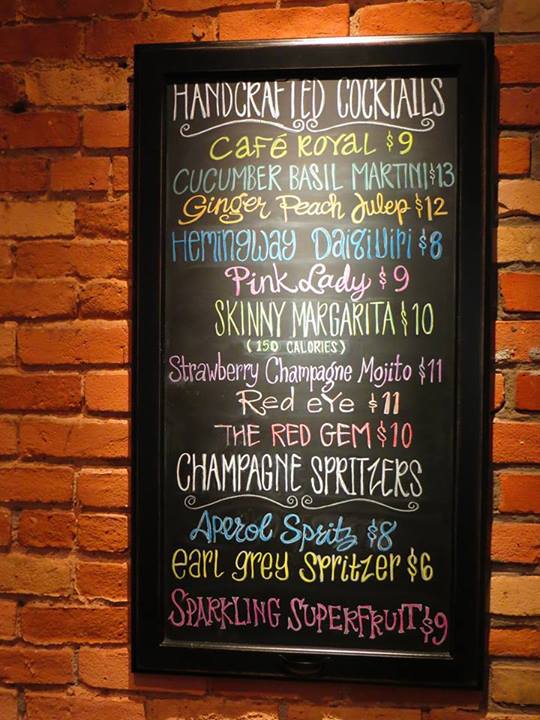 HANDCRAFTED COCKTAILS
Café Royal $9
CUCUMBER BASIL MARTINI $13
Ginger Peach Julep $12
Hemingway Daiqiuiri $8
Pink Lady $9
SKINNY MARGARITA $10
(150 CALORIES)
Strawberry Champagne Mojito $11
Red eye $11
THE RED GEM $10
CHAMPAGNE SPRITZERS
Aperol Spritz $8
earl grey Spritzer $6
SPARKLING SUPERFRUIT $9